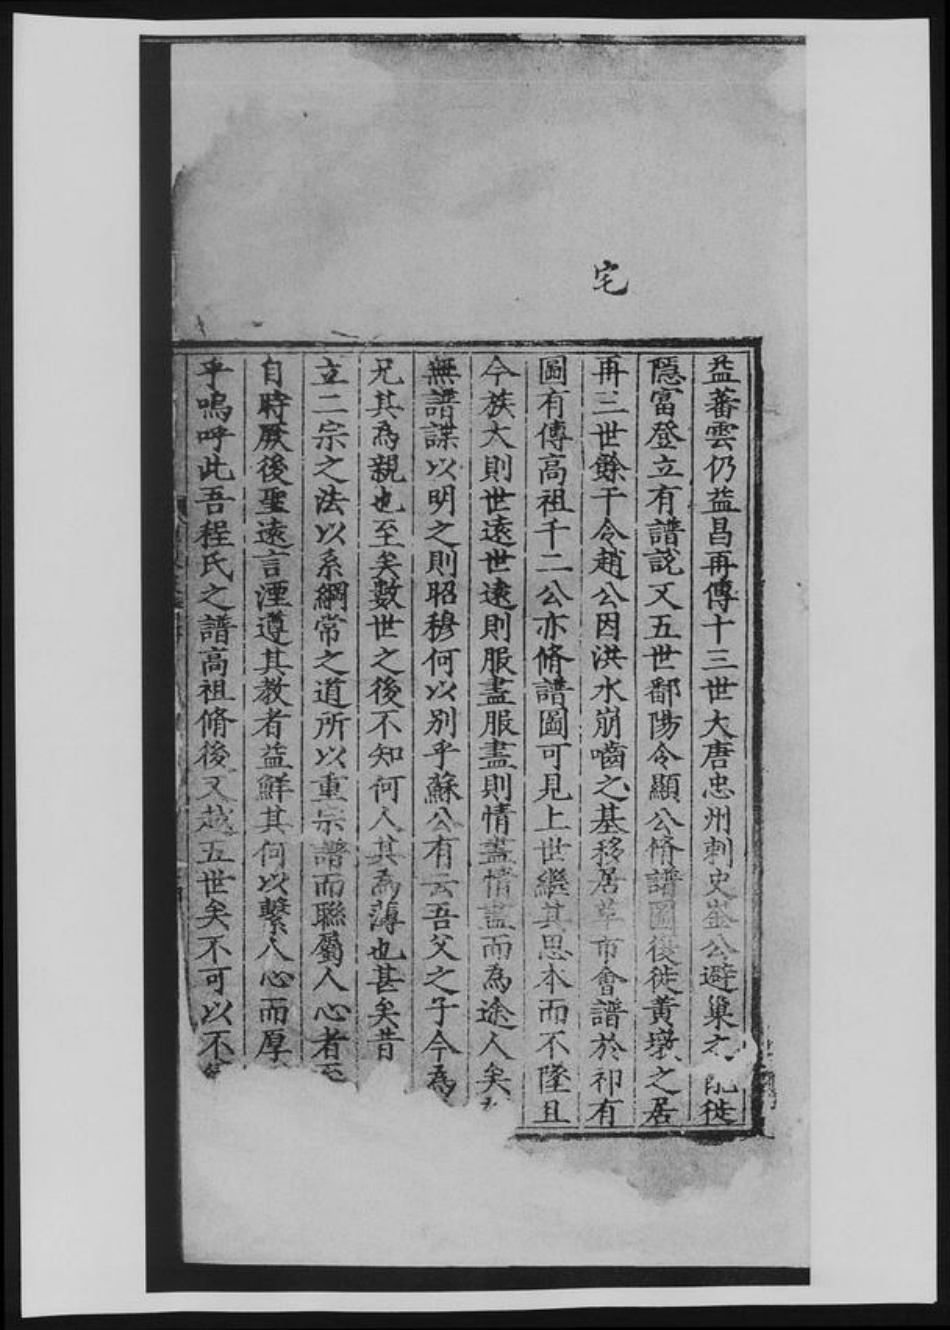 宅
益蕃雲仍益昌再傳十三世大唐忠州刺史崟公避巢之亂徙
隱富登立有譜説又五世鄱陽令顯公脩譜圖復徙黃墩之居
再三世餘干令趙公因洪水崩嚙之基移居草市會譜於祁有
圖有傳高祖千二公亦脩譜圖可見上世繼其思本而不墜且
今族大則世遠世遠則服盡服盡則情盡情盡而為途人矣
無譜諜以明之則昭穆何以別乎蘇公有云吾父之子今為
兄其為親也至矣數世之後不知何人其為薄也甚矣昔
立二宗之法以系綱常之道所以重宗譜而聯屬人心者至
自時厥後聖遠言湮遵其教者益鮮其何以繫人心而厚
乎嗚呼此吾程氏之譜高祖脩後又越五世矣不可以不